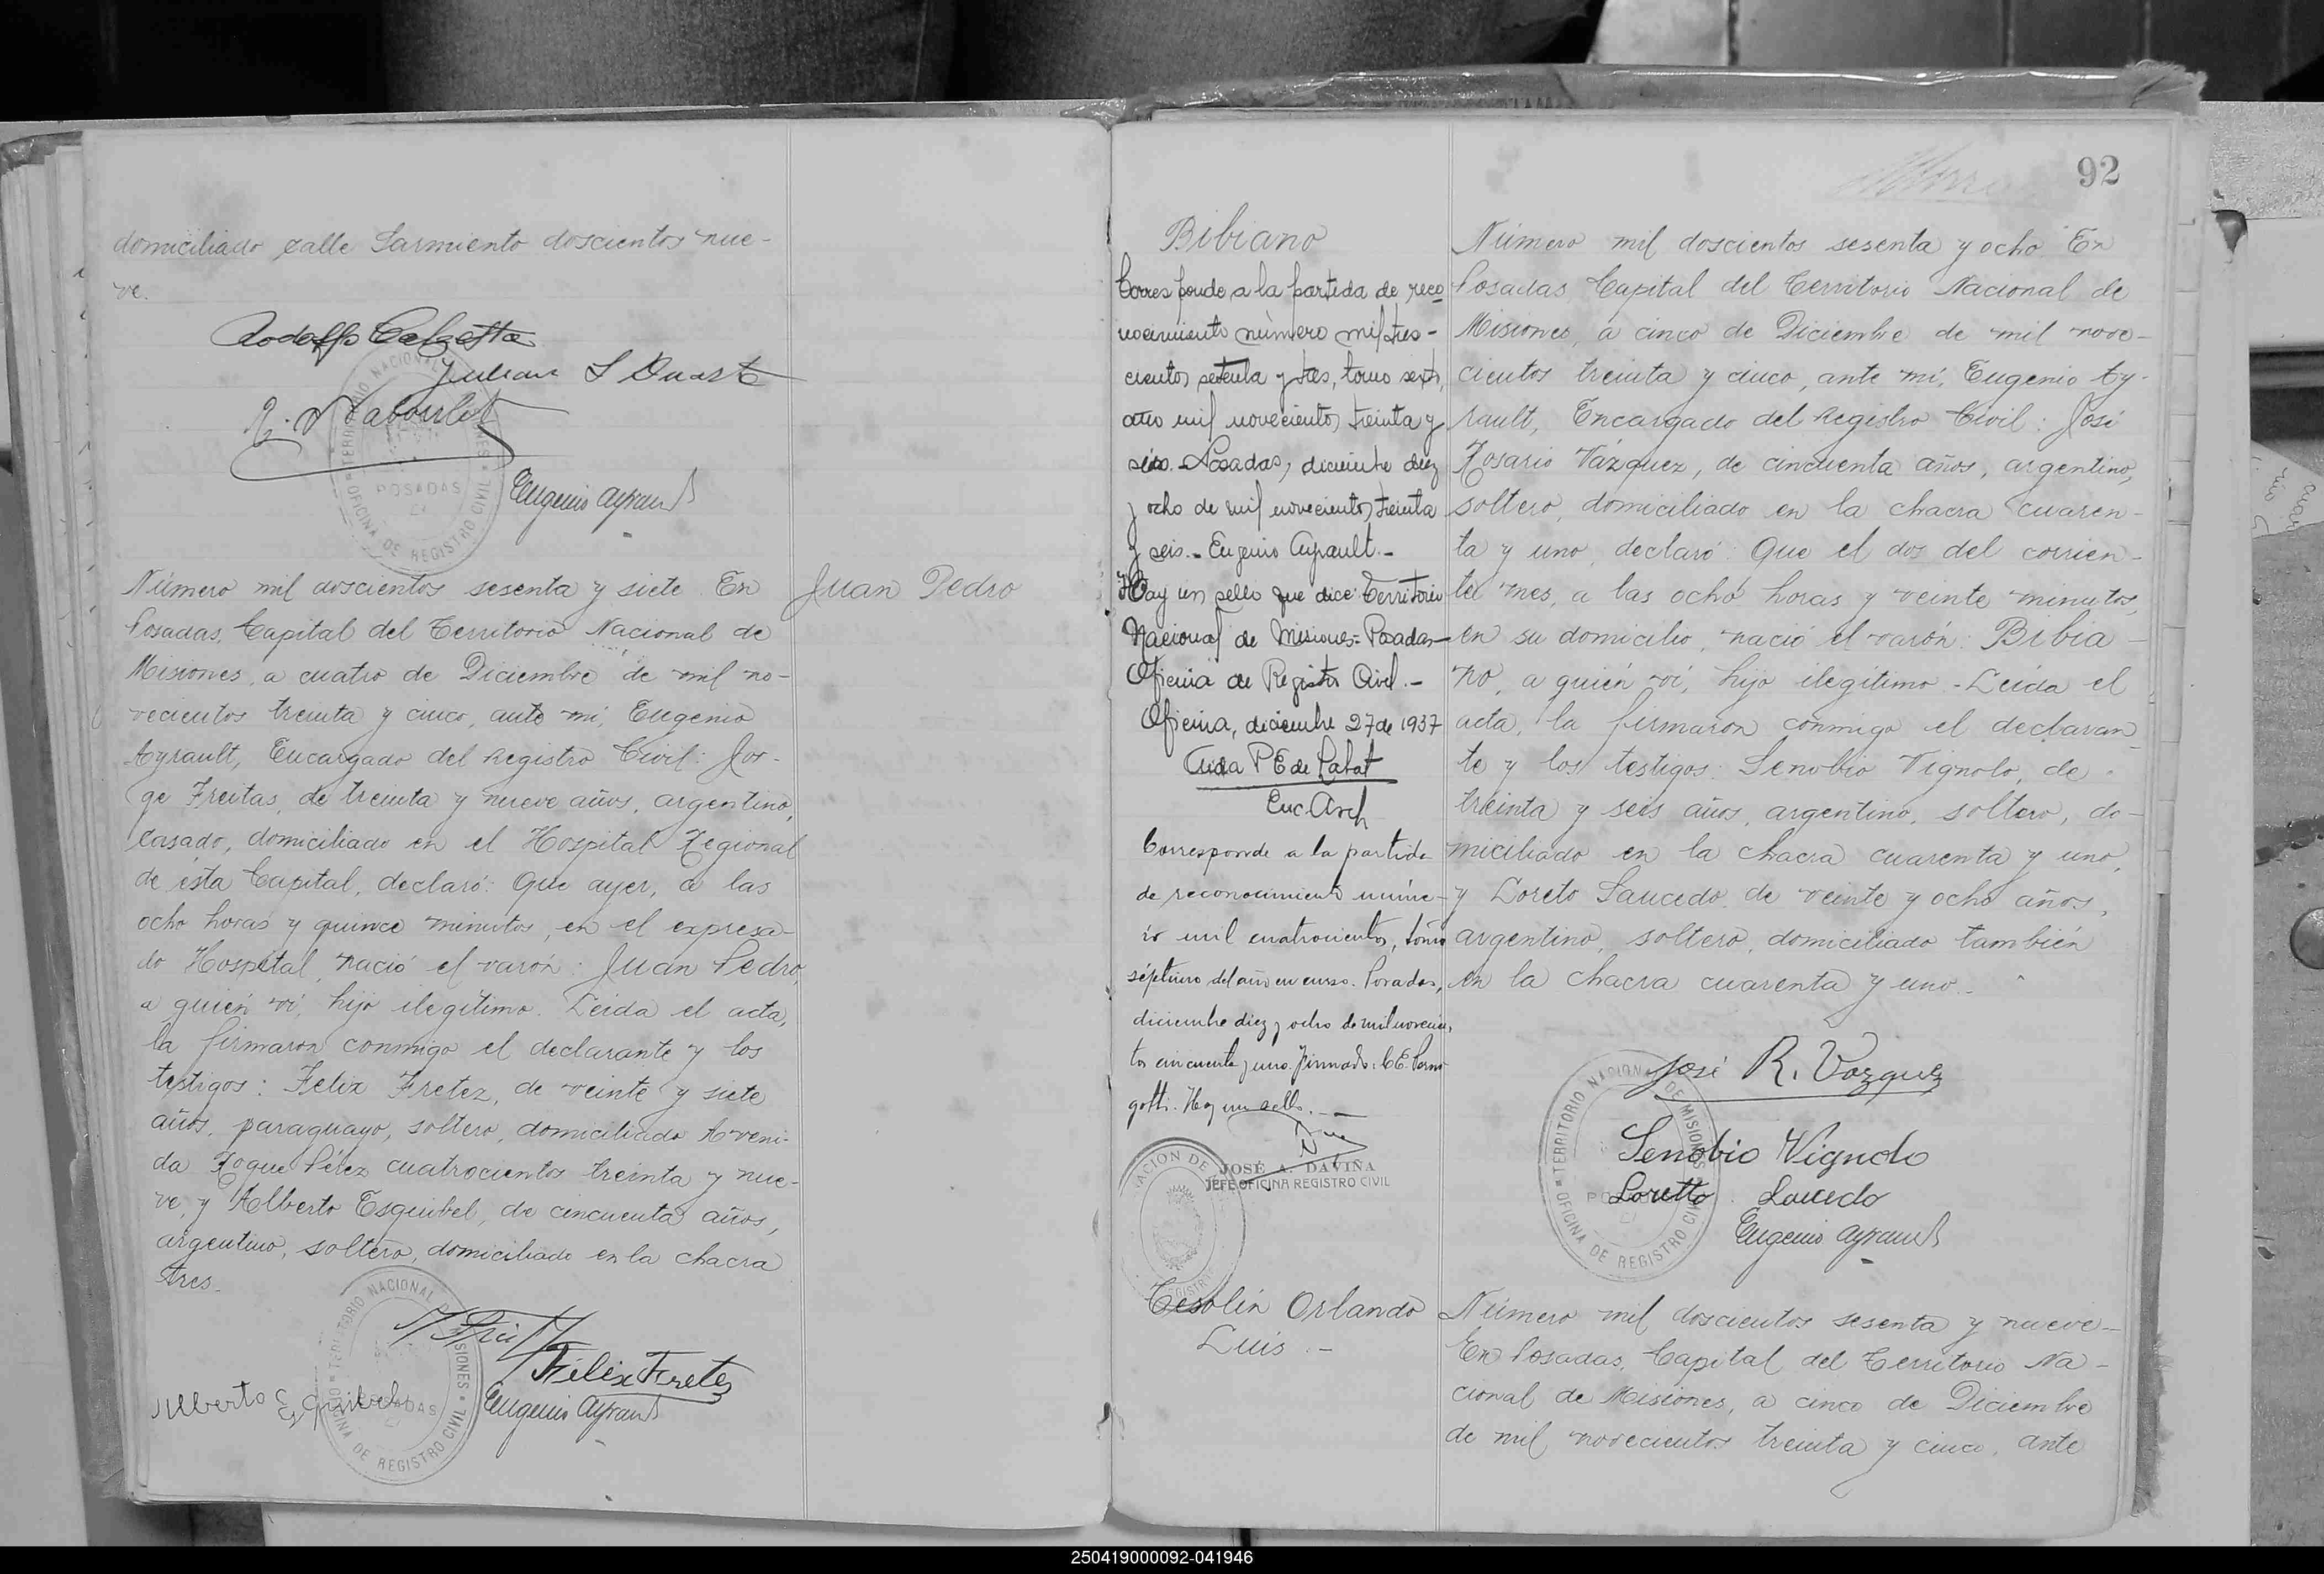 domiciliado calle Sarmiento doscientos nue-
ve.
Julian S Duarte
TERRITORIO NACIONAL DE MISIONES
POSADAS
OFICINA DE REGISTRO CIVIL
Eugenio Ayrault
Número mil doscientos sesenta y siete En
Juan Pedro
Posadas, Capital del Territorio Nacional de
Misiones, a cuatro de Diciembre de mil no-
vecientos treinta y cinco, ante mí, Eugenio
Ayrault, Encargado del Registro Civil: Jor-
ge Freitas, de treinta y nueve años, argentino,
casado, domiciliado en el Hospital Regional
de ésta Capital, declaró: Que ayer, a las
ocho horas y quince minutos, en el expresa-
do Hospital, nació el varón: Juan Pedro,
a quién ví, hijo ilegítimo. Leida el acta,
la firmaron conmigo el declarante y los
testigos: Felix Fretez, de veinte y siete
años, paraguayo, soltero, domiciliado Aveni-
da Roque Pérez cuatrocientos treinta y nue-
ve, y Alberto Esquibel, de cincuenta años,
argentino, soltero, domiciliado en la chacra
tres.
TERRITORIO NACIONAL DE MISIONES
OFICINA DE REGISTRO CIVIL
Félix Fretez
Alberto Esquibel
Eugenio Ayrault
92
Bibiano
Corresponde a la partida de reco
nocimiento número mil tres-
cientos setenta y tres, tomo sexto,
año mil novecientos treinta y
séis.- Posadas, diciembre diez
y ocho de mil novecientos treinta
y seis.- Eugenio Ayrault.-
Hay un sello que dice: Territorio
Nacional de Misiones- Posadas-
Oficina de Registro Civil.-
Oficina, diciembre 27 de 1937
Enc. Arch
Corresponde a la partida
de reconocimiento núme-
ro mil cuatrocientos, tomo
séptimo del año en curso. Posadas,
diciembre diez y ocho de mil novecien-
tos cincuenta y uno. Firmado: C E.
Hay un sello.-
JOSÉ A. DAVIÑA
JEFE OFICINA REGISTRO CIVIL
Número mil doscientos sesenta y ocho En
Posadas, Capital del Territorio Nacional de
Misiones, a cinco de Diciembre de mil nove-
cientos treinta y cinco, ante mí, Eugenio Ay-
rault, Encargado del Registro Civil: José
Rosario Vázquez, de cincuenta años, argentino,
soltero, domiciliado en la chacra cuaren-
ta y uno, declaró: Que el dos del corrien-
te mes, a las ocho horas y veinte minutos,
en su domicilio, nació el varón: Bibia-
no, a quién ví, hijo ilegítimo - Leida el
acta, la firmaron conmigo el declaran-
te y los testigos: Senobio Vignolo, de
treinta y seis años, argentino, soltero, do-
miciliado en la chacra cuarenta y uno,
y Loreto Saucedo, de veinte y ocho años,
argentino, soltero, domiciliado también
en la chacra cuarenta y uno.-
TERRITORIO NACIONAL DE MISIONES
OFICINA DE REGISTRO CIVIL
José R. Vazquez
Senobio Vignolo
Loretto Saucedo
Eugenio Ayrault
Tesolin Orlando
Luis.-
Número mil doscientos sesenta y nueve-
En Posadas, Capital del Territorio Na-
cional de Misiones, a cinco de Diciembre
de mil novecientos treinta y cinco, ante
250419000092-041946